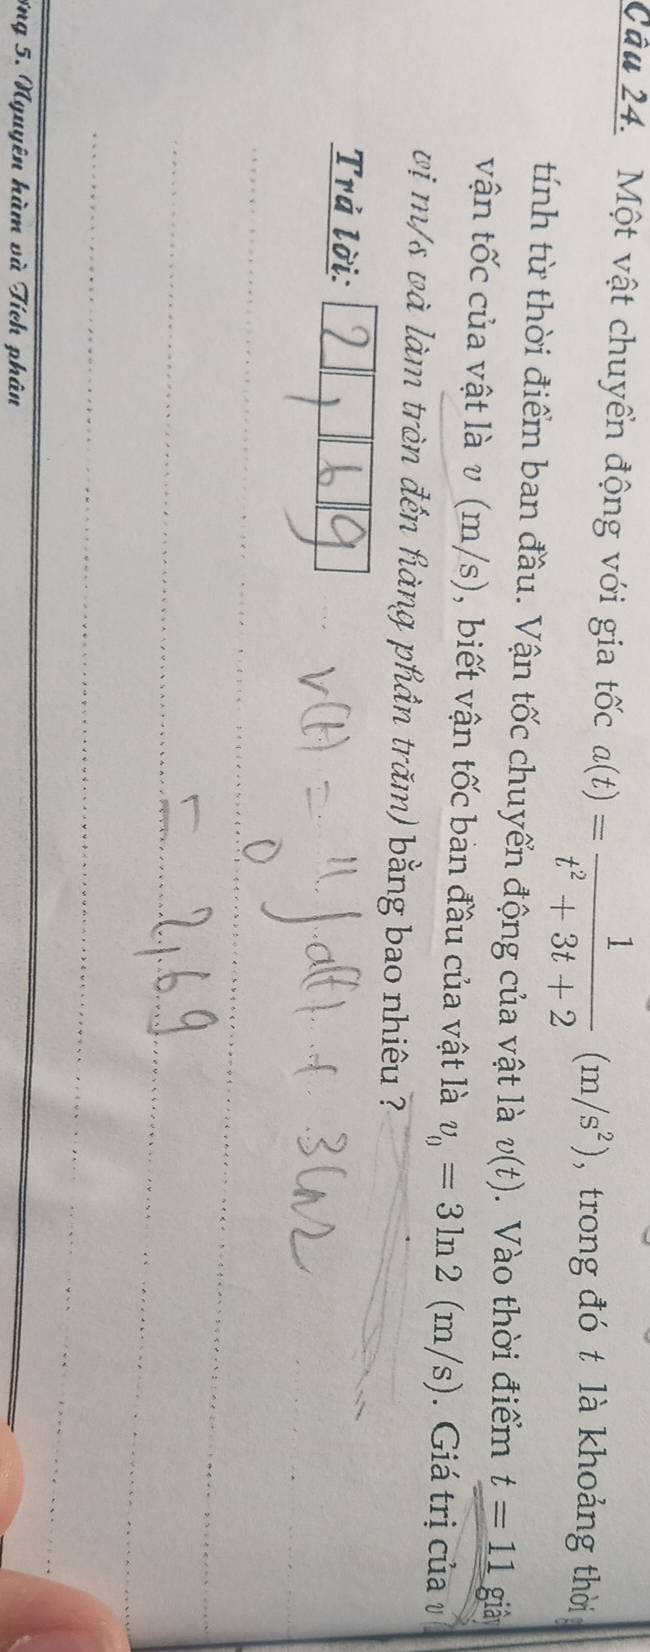 Câu 24. Một vật chuyển động với gia tốc a(t) = 1/(t² + 3t + 2) (m/s²), trong đó t là khoảng thời
tính từ thời điểm ban đầu. Vận tốc chuyển động của vật là v(t). Vào thời điểm t = 11 giây
vận tốc của vật là v (m/s), biết vận tốc ban đầu của vật là v₀ = 3 ln 2 (m/s). Giá trị của v
vị m/s và làm tròn đến hàng phần trăm) bằng bao nhiêu ?
Trả lời: 2 , 6 9
v(t) = ∫₀¹¹ a(t) + 3ln2
= 2,69
5. Nguyên hàm và Tích phân